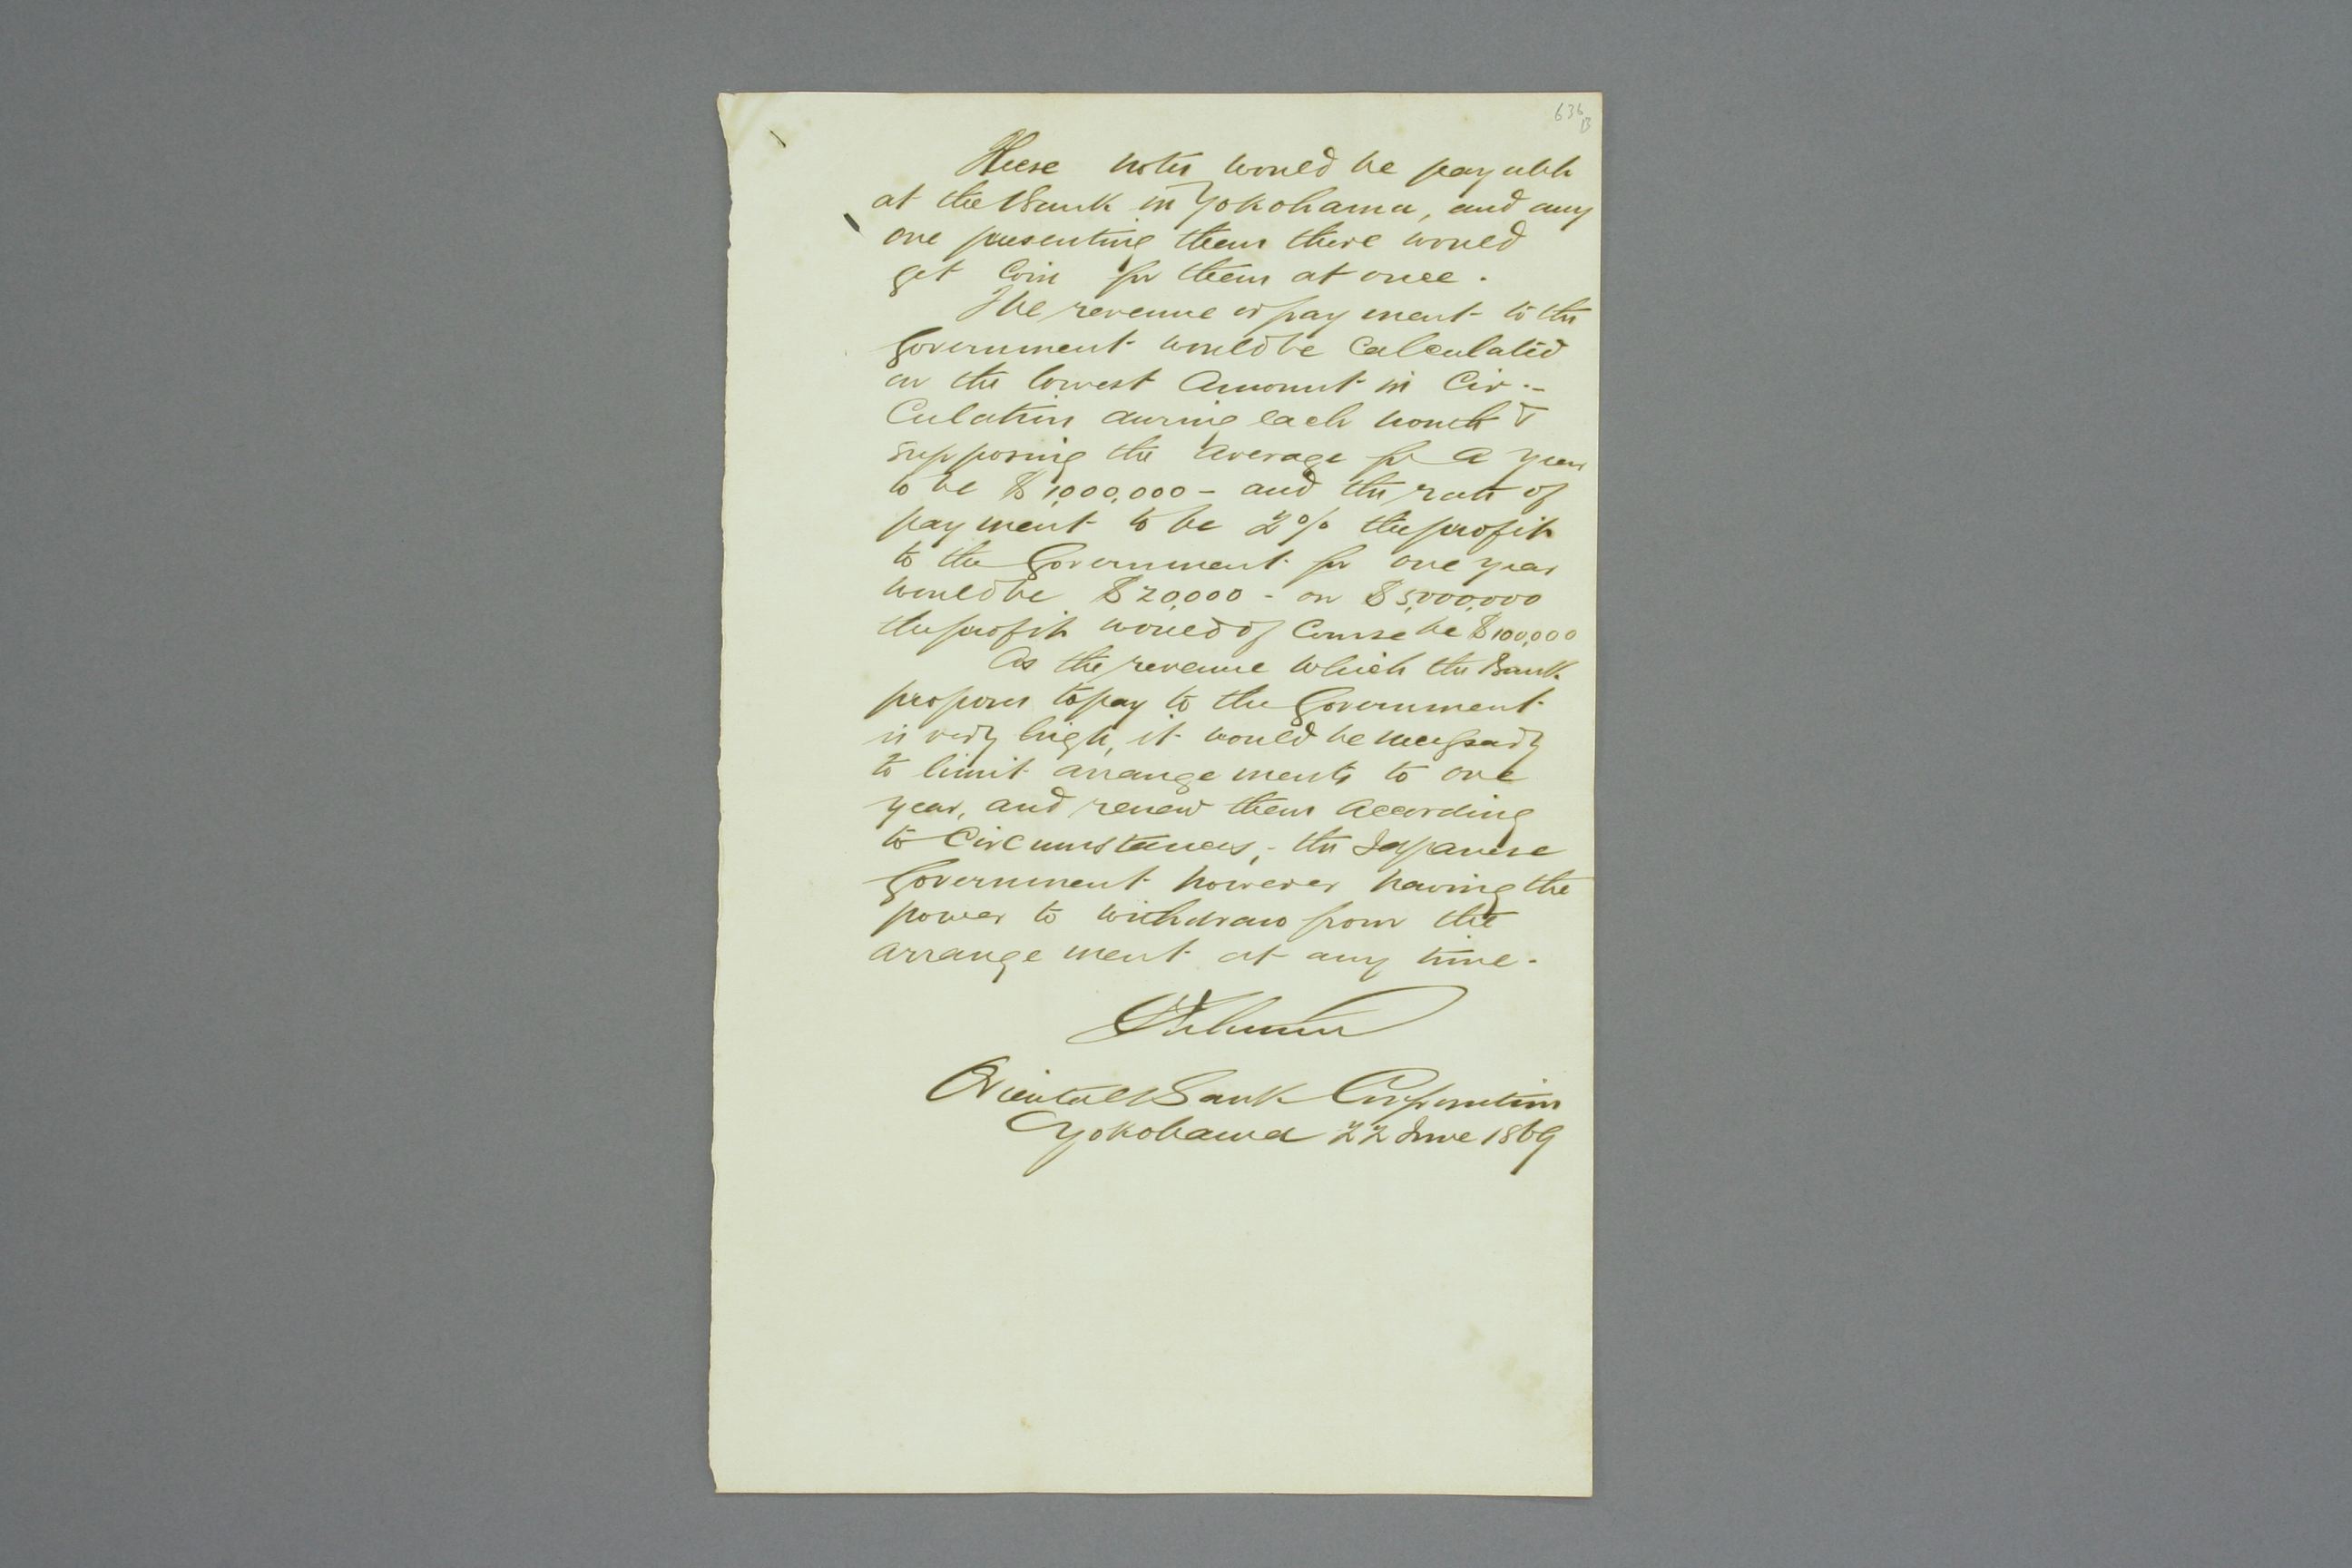 636
B
These notes would be payable
at the Bank in Yokohama, and any
one presenting them there would
get Coin for them at once.
The revenue or payment to the
Government would be Calculated
on the lowest Amount in Cir-
Culation during each month &
supposing the average for a year
to be $1,000,000 - and the rate of
payment to be 2% the profit
to the Government for one year
would be $20,000 - on $5,000,000
the profit would of Course be $100,000
As the revenue which the Bank
proposes to pay to the Government
is very high, it would be necessary
to limit arrangements to one
year, and renew them According
to Circumstances, - the Japanese
Government however having the
power to withdraw from the
arrangement at any time.
Oriental Bank Corporation
Yokohama 22 June 1869